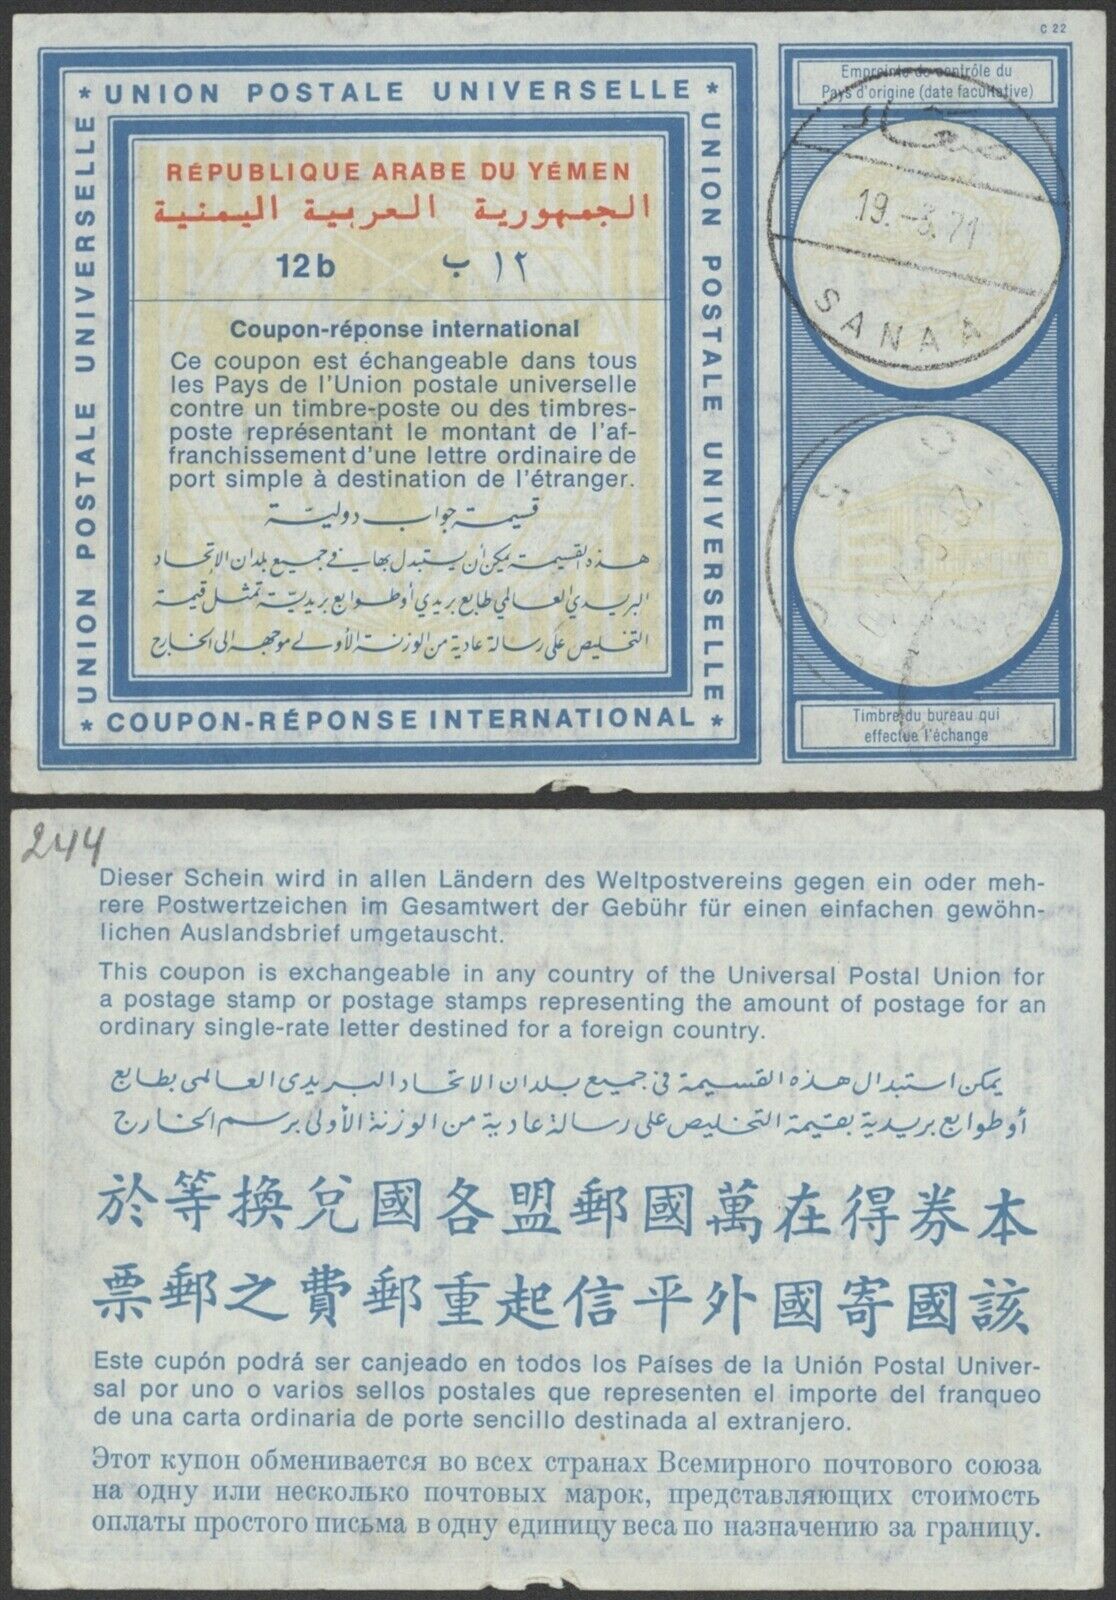 C 22
* UNION POSTALE UNIVERSELLE *
UNION POSTALE UNIVERSELLE
UNION POSTALE UNIVERSELLE
RÉPUBLIQUE ARABE DU YÉMEN
الجمهورية العربية اليمنية
12 b ١٢ ب
Coupon-réponse international
Ce coupon est échangeable dans tous
les Pays de l'Union postale universelle
contre un timbre-poste ou des timbres-
poste représentant le montant de l'af-
franchissement d'une lettre ordinaire de
port simple à destination de l'étranger.
قسيمة جواب دولية
هذه القسيمة يمكن أن يستبدل بها في جميع بلدان الإتحاد
البريدي العالمي طابع بريدي أو طوابع بريدية تمثل قيمة
التخليص على رسالة عادية من الوزنة الأولى موجهة الى الخارج
* COUPON-RÉPONSE INTERNATIONAL *
Empreinte de contrôle du
Pays d'origine (date facultative)
صنعاء
19.-3.71
SANAA
Timbre du bureau qui
effectue l'échange
244
Dieser Schein wird in allen Ländern des Weltpostvereins gegen ein oder meh-
rere Postwertzeichen im Gesamtwert der Gebühr für einen einfachen gewöhn-
lichen Auslandsbrief umgetauscht.
This coupon is exchangeable in any country of the Universal Postal Union for
a postage stamp or postage stamps representing the amount of postage for an
ordinary single-rate letter destined for a foreign country.
يمكن استبدال هذه القسيمة في جميع بلدان الاتحاد البريدى العالمى بطابع
أو طوابع بريدية بقيمة التخليص على رسالة عادية من الوزنة الأولى برسم الخارج
於等換兌國各盟郵國萬在得券本
票郵之費郵重起信平外國寄國該
Este cupón podrá ser canjeado en todos los Países de la Unión Postal Univer-
sal por uno o varios sellos postales que representen el importe del franqueo
de una carta ordinaria de porte sencillo destinada al extranjero.
Этот купон обменивается во всех странах Всемирного почтового союза
на одну или несколько почтовых марок, представляющих стоимость
оплаты простого письма в одну единицу веса по назначению за границу.